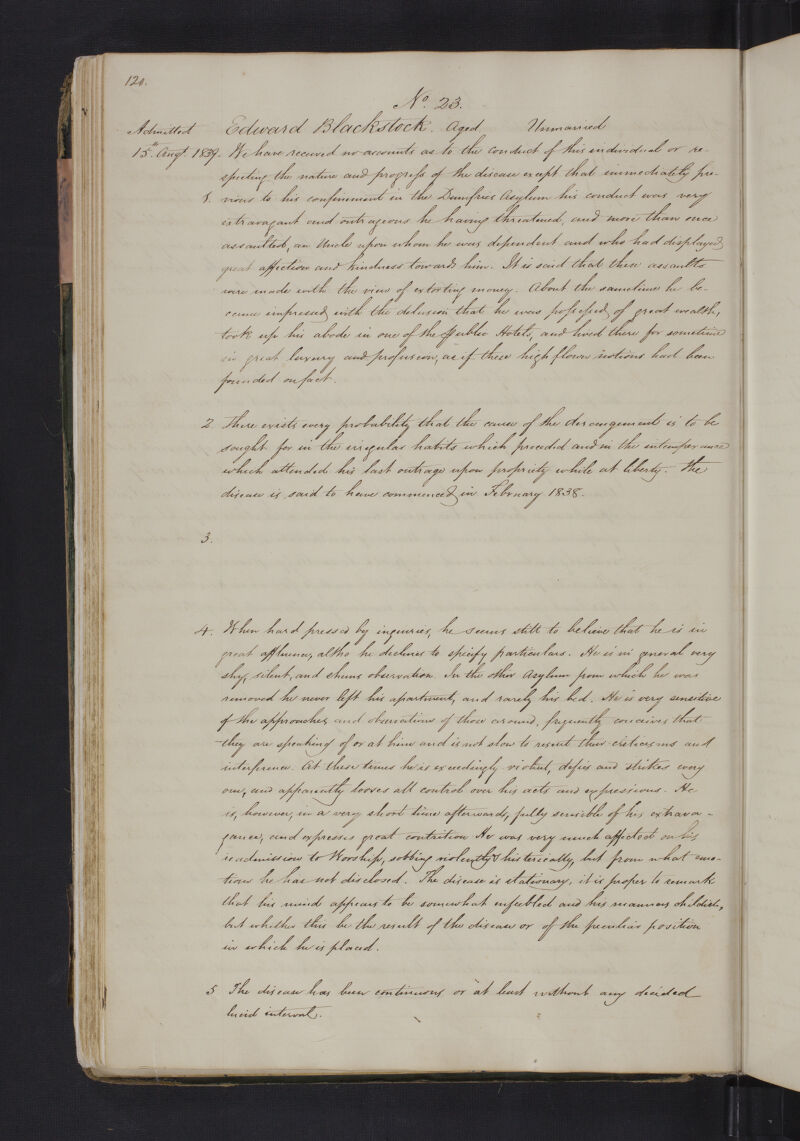 120.
No. 23.
Admitted Edward Blackstock. Aged Unmarried
15th Augt. 1839. We have received no accounts as to the conduct of this individual or re-
specting the nature and progress of the disease except that immediately pre-
1. vious to his confinement in the Dumfries Asylum his conduct was very
extravagant and outrageous he having threatened, and more than once
assaulted, an Uncle upon whom he was dependent and who had displayed
great affection and kindness towards him. It is said that these assaults
were made with the view of extorting money. About the sametime he be-
came impressed with the delusion that he was possessed of great wealth,
took up his abode in one of the Public Hotels, and lived there for sometime
in great luxury and profusion, as if these high flown notions had been
founded on fact.
2. There exists every probability that the cause of the derangement is to be
sought for in the irregular habits which preceded and in the intemperance
which attended his last outrage upon propriety while at liberty. The
disease is said to have commenced in February 1838.
3.
4. When hard pressed by inquiries, he seems still to believe that he is in
great affluence, altho he declines to specify particulars. He is in general very
shy, silent, and shuns observation. In the other Asylum from which he was
removed he never left his apartment, and rarely his bed. He is very sensitive
of the approaches and observations of those around, frequently conceives that
they are speaking of or at him and is not slow to resent their criticisms and
interference. At these times he is exceedingly violent, defies and strikes every
one, and apparently looses all control over his acts and expressions. He
is, however, in a very short time afterwards, fully sensible of his extrava-
gance, and expresses great contrition He was very much affected on his
readmission to Worship, sobbing violently & histerically, but from what emo-
tions he has not disclosed. The disease is stationary, it is proper to remark
that his mind appears to be somewhat enfeebled and his manners childish,
but whether this be the result of the disease or of the peculiar position
in which he is placed.
5 The disease has been continuous or at least without any decided
lucid interval.